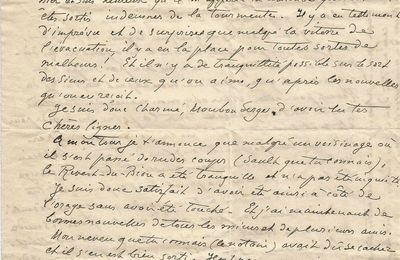 êtes sortis indemnes de la tourmente. Il y a eu tellement
d'imprévu et de surprises que malgré la vitesse de
l'évacuation, il y a eu la place pour toutes sortes de
malheurs ! Et il n'y a de tranquillité possible sur le sort
des siens et de ceux qu'on aime, qu'après les nouvelles
qu'on en reçoit.
Je suis donc charmé, mon bon berger, d'avoir lu tes
chères lignes.
A mon tour, je t'annonce que malgré un voisinage où
il s'est passé de rudes coups (Sault que tu connais),
le Revest-du-Bion a été tranquille et n'a pas été inquiété.
Je suis donc satisfait d'avoir été ainsi à côté de
l'orage sans avoir été touché. Et j'ai maintenant de
bonnes nouvelles de tous les miens et de plusieurs amis.
Mon neveu que tu connais (le notaire) avait dû se cacher
et il s'en est bien sorti.